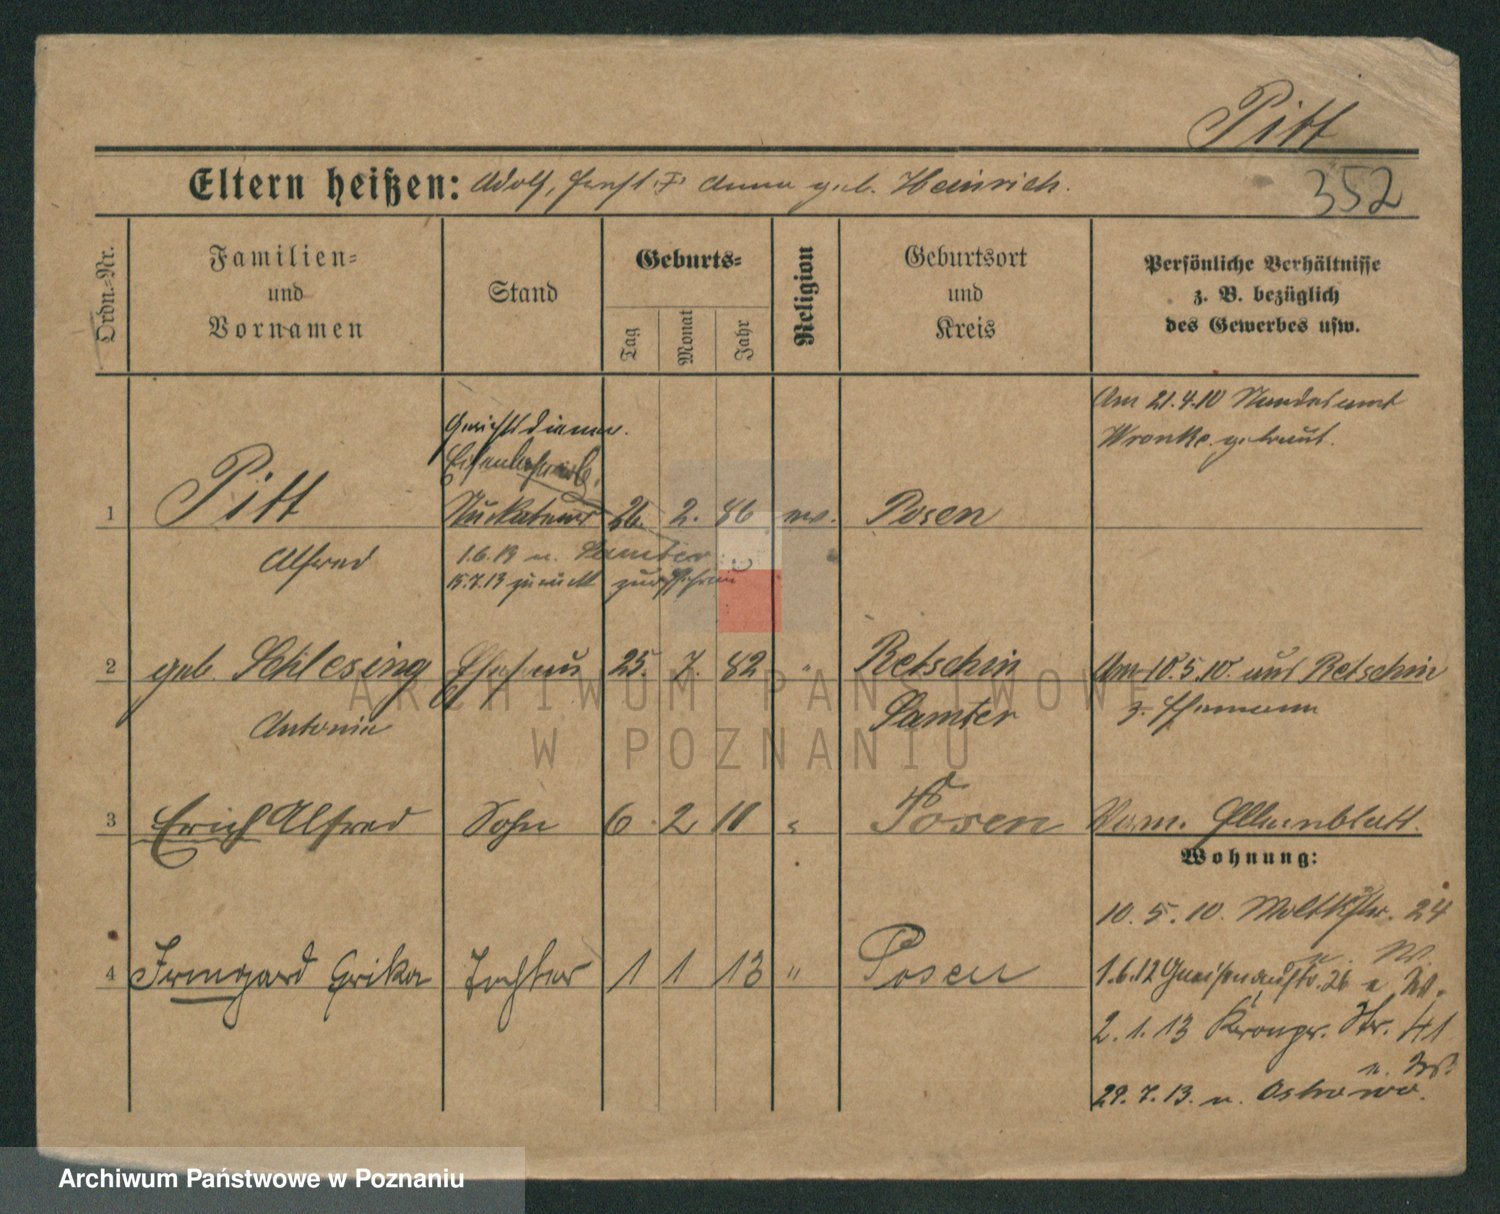 Pitt
Eltern heißen: Adolf, Anna geb. Heinrich.
352
Ordn.-Nr.
Familien-
und
Vornamen
Stand
Geburts-
Tag
Monat
Jahr
Religion
Geburtsort
und
Kreis
Persönliche Verhältnisse
z. B. bezüglich
des Gewerbes usw.
Am 21.4.10 Standesamt
Wronke getraut.
Gerichtsdiener.
1 Pitt 26. 2. 86 ev. Posen
Alfred
1.6.13 n. Samter
15.7.13 zurück
2 geb. Schlesing Ehefrau 25. 7. 82 " Retschin Am 10.5.10. aus Retschin
Antonie Samter z. Ehemann
3 Erich Alfred Sohn 6. 2 11 " Posen
Wohnung:
10. 5. 10. Moltkestr. 24
4 Irmgard Erika Tochter 1 1 13 " Posen
1.6.12 Gneisenaustr. 26
2. 1. 13 Kronpr. Str. 41
29. 7. 13. n. Ostrowo.
ARCHIWUM PAŃSTWOWE
W POZNANIU
Archiwum Państwowe w Poznaniu